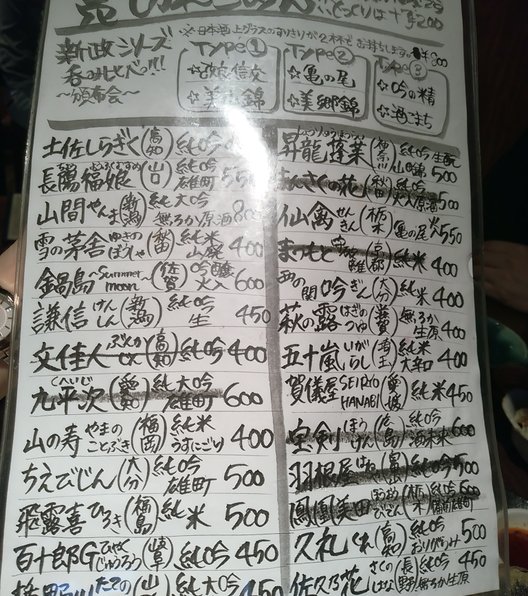 とっくりは+¥200
※日本酒
新政シリーズ
呑み比べっ!!
～頒布会～
Type①
美山錦
Type②
☆亀の尾
☆美郷錦
Type③
☆吟の精
☆酒こまち
¥800
土佐しらぎく(高知)純吟
長陽福娘(山口)純吟雄町 550
山間やんま(新潟)純大吟無ろか原酒 800
雪の茅舎ゆきのぼうしゃ(秋田)純米山廃 400
鍋島～Summer moon～(佐賀)吟醸火入 600
謙信けんしん(新潟)純吟生 450
文佳人ぶんかじん(高知)純吟 400
九平次くへいじ(愛知)純大吟雄町 600
山の寿やまのことぶき(福岡)純米うすにごり 400
ちえびじん(大分)純吟雄町 500
飛露喜ひろき(福島)純米 500
百十郎Gひゃくじゅうろう(岐阜)純吟 450
純大吟 450
昇龍蓬莱(神奈川)純吟生酛山田錦 500
まんさくの花(秋田)純吟火入原酒 500
仙禽せんきん(栃木)亀の尾火入 550
まつもと(京都)純米 400
西の関吟ぎん(大分)純米 400
萩の露はぎのつゆ(滋賀)無ろか生原 400
五十嵐いがらし(埼玉)純米大和 400
賀儀屋SEIRYO HANABI(愛媛)純米 450
宝剣ほうけん(広島)純米 600
羽根屋はねや(富山)純吟 500
鳳凰美田
久礼くれ(高知)純吟おりがらみ 500
佐久乃花さくのはな(長野)純吟無ろか生原 450